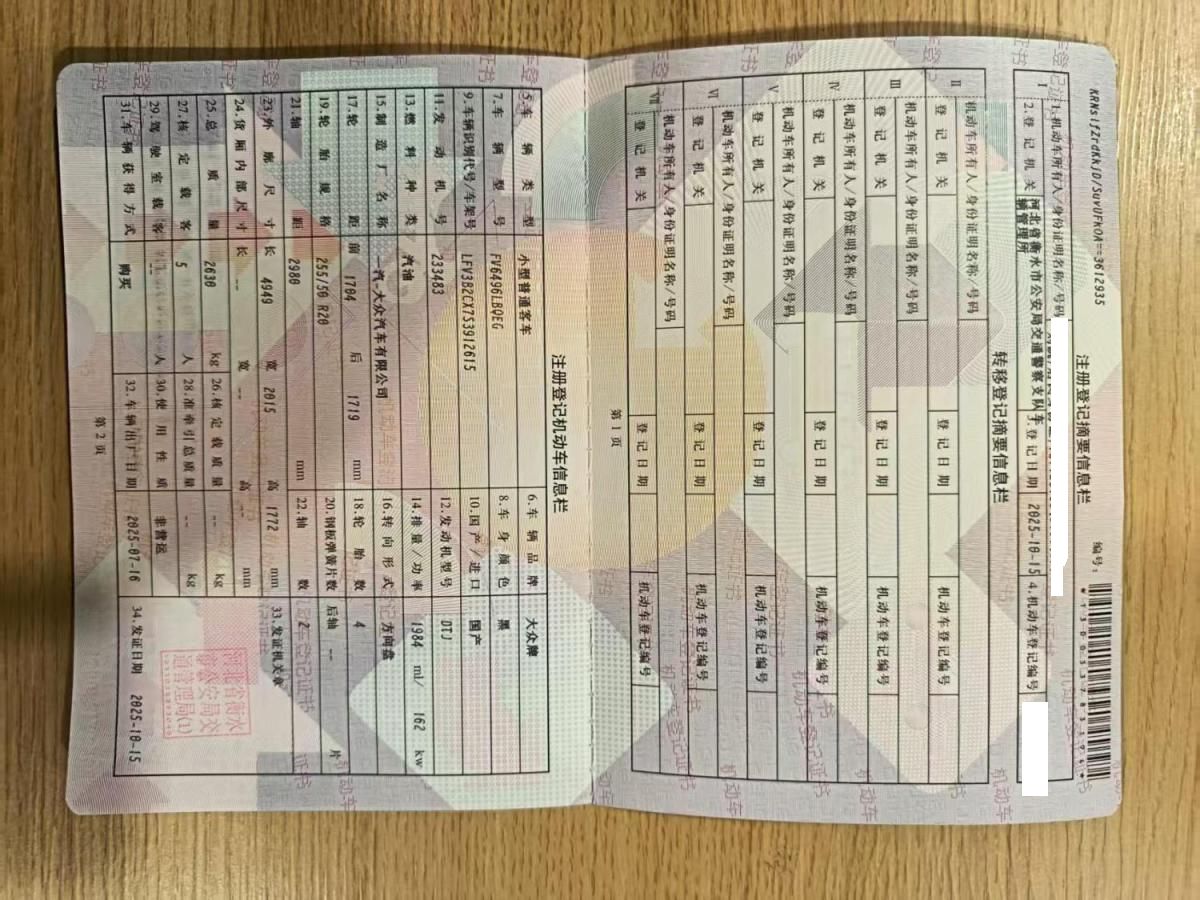 KRNsifZrdKkjD/SuvUFkOA==3612935
编号:
注册登记摘要信息栏
I
1.机动车所有人/身份证明名称/号码
2.登记机关
河北省衡水市公安局交通警察支队车辆管理所
3.登记日期
2025-10-15
4.机动车登记编号
转移登记摘要信息栏
II
机动车所有人/身份证明名称/号码
登记机关
登记日期
机动车登记编号
III
机动车所有人/身份证明名称/号码
登记机关
登记日期
机动车登记编号
IV
机动车所有人/身份证明名称/号码
登记机关
登记日期
机动车登记编号
V
机动车所有人/身份证明名称/号码
登记机关
登记日期
机动车登记编号
VI
机动车所有人/身份证明名称/号码
登记机关
登记日期
机动车登记编号
VII
机动车所有人/身份证明名称/号码
登记机关
登记日期
机动车登记编号
第1页
注册登记机动车信息栏
5.车辆类型 小型普通客车 6.车辆品牌 大众牌
7.车辆型号 FV6496LBQEG 8.车身颜色 黑
9.车辆识别代号/车架号 LFV3B2CX7S3912615 10.国产/进口 国产
11.发动机号 233483 12.发动机型号 DTJ
13.燃料种类 汽油 14.排量/功率 1984 ml/ 162 kw
15.制造厂名称 一汽-大众汽车有限公司 16.转向形式 方向盘
17.轮距 前 1704 后 1719 mm 18.轮胎数 4
19.轮胎规格 255/50 R20 20.钢板弹簧片数 后轴 -- 片
21.轴距 2980 mm 22.轴数 2
23.外廓尺寸 长 4949 宽 2015 高 1772 mm 33.发证机关章
24.货厢内部尺寸 长 -- 宽 -- 高 -- mm
25.总质量 2630 kg 26.核定载质量 -- kg
27.核定载客 5 人 28.准牵引总质量 -- kg
29.驾驶室载客 -- 人 30.使用性质 非营运
31.车辆获得方式 购买 32.车辆出厂日期 2025-07-16 34.发证日期 2025-10-15
第2页